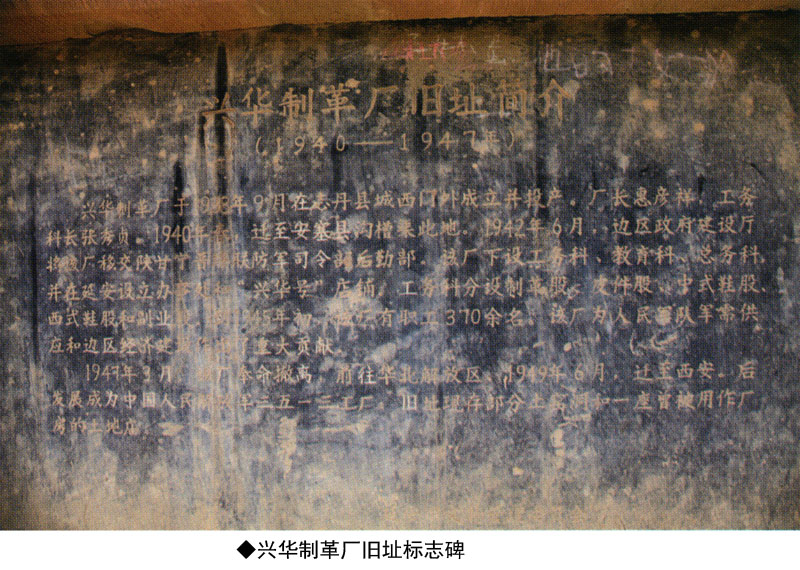 兴华制革厂旧址简介
(1940——1947年)
兴华制革厂于19年9月在志丹县城西门外成立并投产。厂长惠彦祥，工务
科长张秀贞。1940年春，迁至安塞县沟槽渠此地。1942年6月，边区政府建设厅
将该厂移交陕甘宁留防军司令部后勤部。该厂下设工务科、教育科、总务科，
并在延安设立办"兴华号"店铺。工务科分设制革股、皮件股、中式鞋股、
西式鞋股和副业股。到1945年初，有职工370余名。该厂为人民军队军需供
应和边区经济建设作了重大贡献。
1947年3月，奉命撤离，前往华北解放区。1949年6月，迁至西安。后
发展成为中国人民解放军三五一三工厂。旧址现存部分土窑洞和一座曾被用作厂
房的土地庙。
◆兴华制革厂旧址标志碑